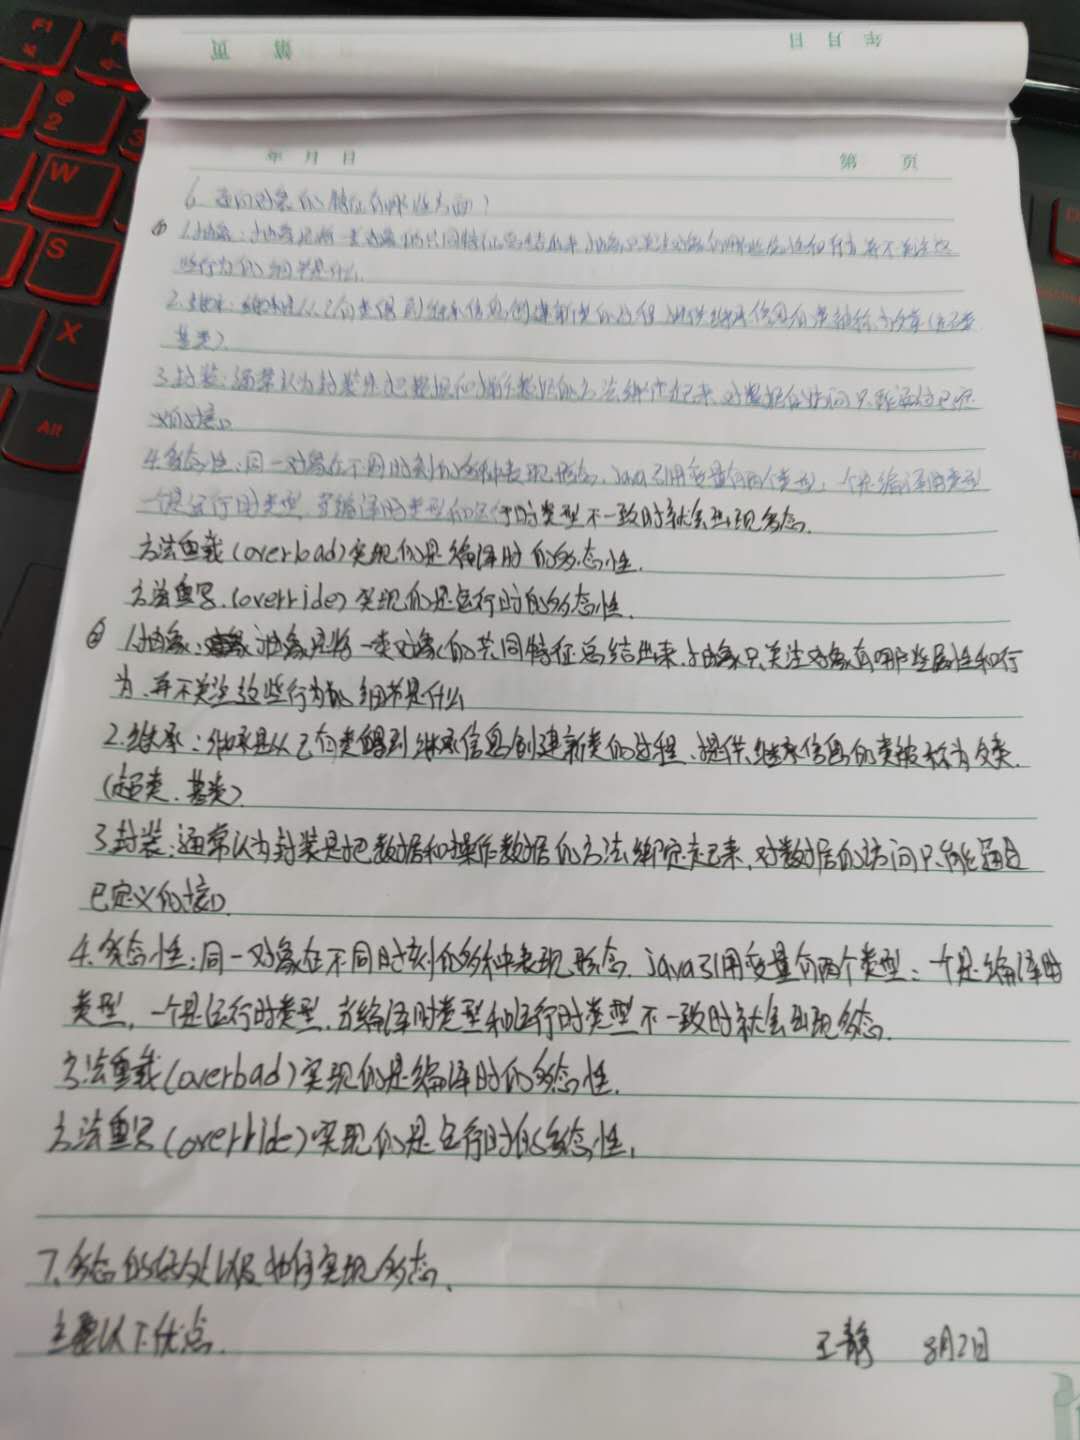 年 月 日
第 页
年 月 日 第 页
6. 面向对象的特征有哪些方面？
① 1.抽象：抽象是将一类对象的共同特征总结出来，抽象只关注对象有哪些属性和行为，并不关注这
些行为的细节是什么.
2.继承：继承是从已有类得到继承信息创建新类的过程，提供继承信息的类被称为父类（超类、
基类）.
3.封装：通常认为封装是把数据和操作数据的方法绑定起来，对数据的访问只能通过已定
义的接口
4.多态性：同一对象在不同时刻的多种表现形态. java引用变量有两个类型：一个是编译时类型
一个是运行时类型. 当编译时类型和运行时类型不一致时就会出现多态.
方法重载(overload)实现的是编译时的多态性.
方法重写(override)实现的是运行时的多态性.
② 1.抽象：抽象是将一类对象的共同特征总结出来.抽象只关注对象有哪些属性和行
为.并不关注这些行为的细节是什么
2.继承：继承是从已有类得到继承信息创建新类的过程、提供继承信息的类被称为父类.
(超类、基类)
3.封装：通常认为封装是把数据和操作数据的方法绑定起来，对数据的访问只能通过
已定义的接口
4.多态性：同一对象在不同时刻的多种表现形态. java引用变量有两个类型：一个是编译时
类型，一个是运行时类型.当编译时类型和运行时类型不一致时就会出现多态.
方法重载(overload)实现的是编译时的多态性.
方法重写(override)实现的是运行时的多态性.
7.多态的好处以及如何实现多态.
主要以下优点.
王静 8月2日
F1
@
2
3
W
S
X
Alt